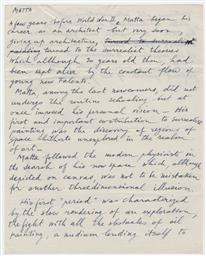 MATTA
A few years before World War II, Matta began his
career as an architect but very soon
giving up architecture, turned to surrealist
painting turned to the surrealist theories
which although 20 years old then, had
been kept alive by the constant flow of
young new talents.
Matta, among the last newcomers, did not
undergo the routine schooling but at
once imposed his personal vision. His
first and important contribution to surrealist
painting was the discovery of regions of
space hitherto unexplored in the realm
of art —
Matta followed the modern physicist in
the search of this new space which, although
depicted on canvas, was not to be mistaken
for another three dimensional illusion.
His first "period" was characterized
by the slow rendering of an exploration,
the fight with all the obstacles of oil
painting, a medium lending itself to